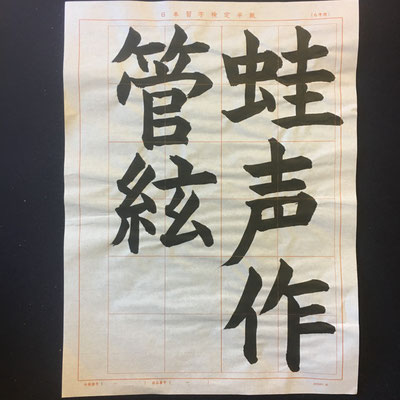 日本習字検定半紙
蛙声作
管絃